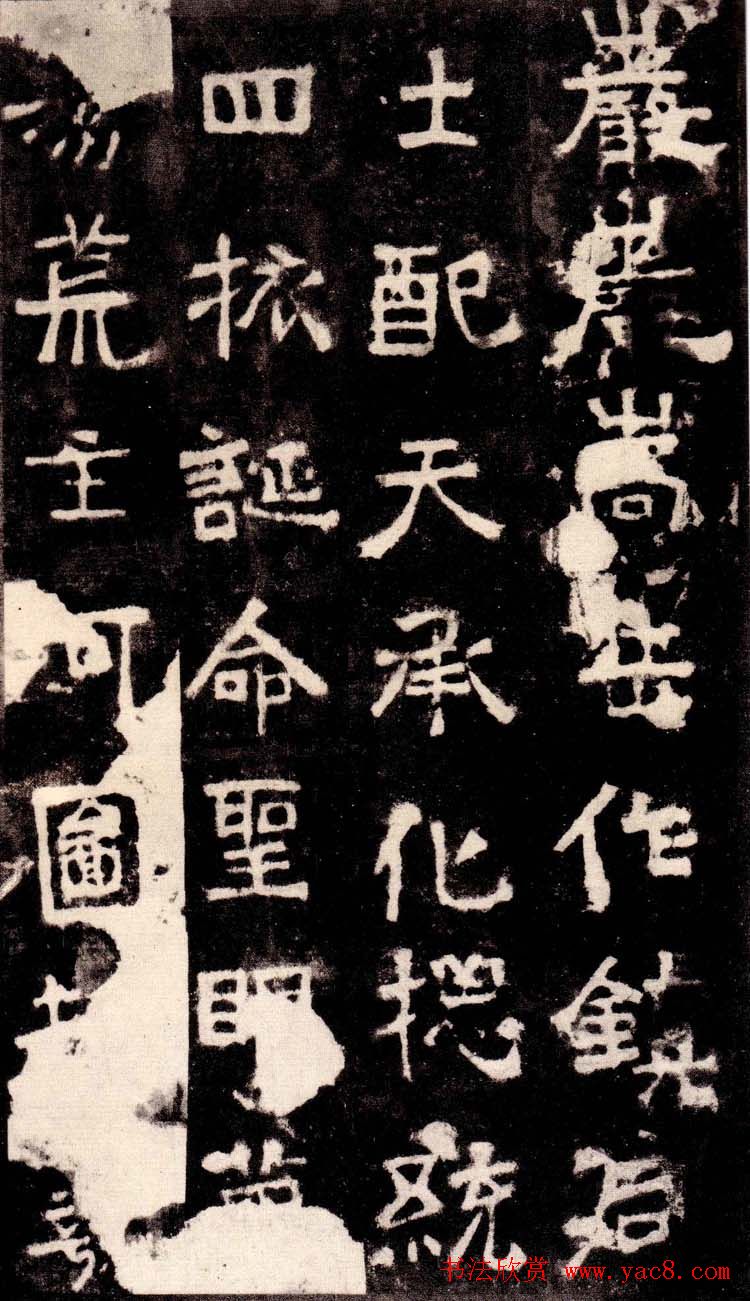 巖巖嵩岳作鎮后
土配天承化揔統
四誕命聖明
荒主圖
书法欣赏 www.yac8.com